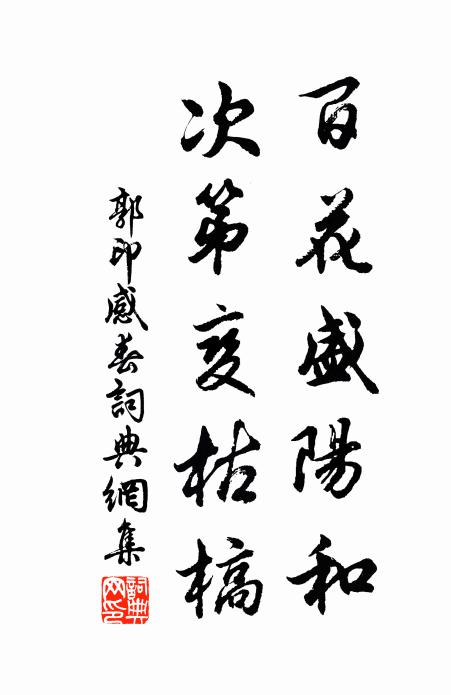 百花盛陽和
次第变枯槁
郭印感春詞典網集
詞典網印